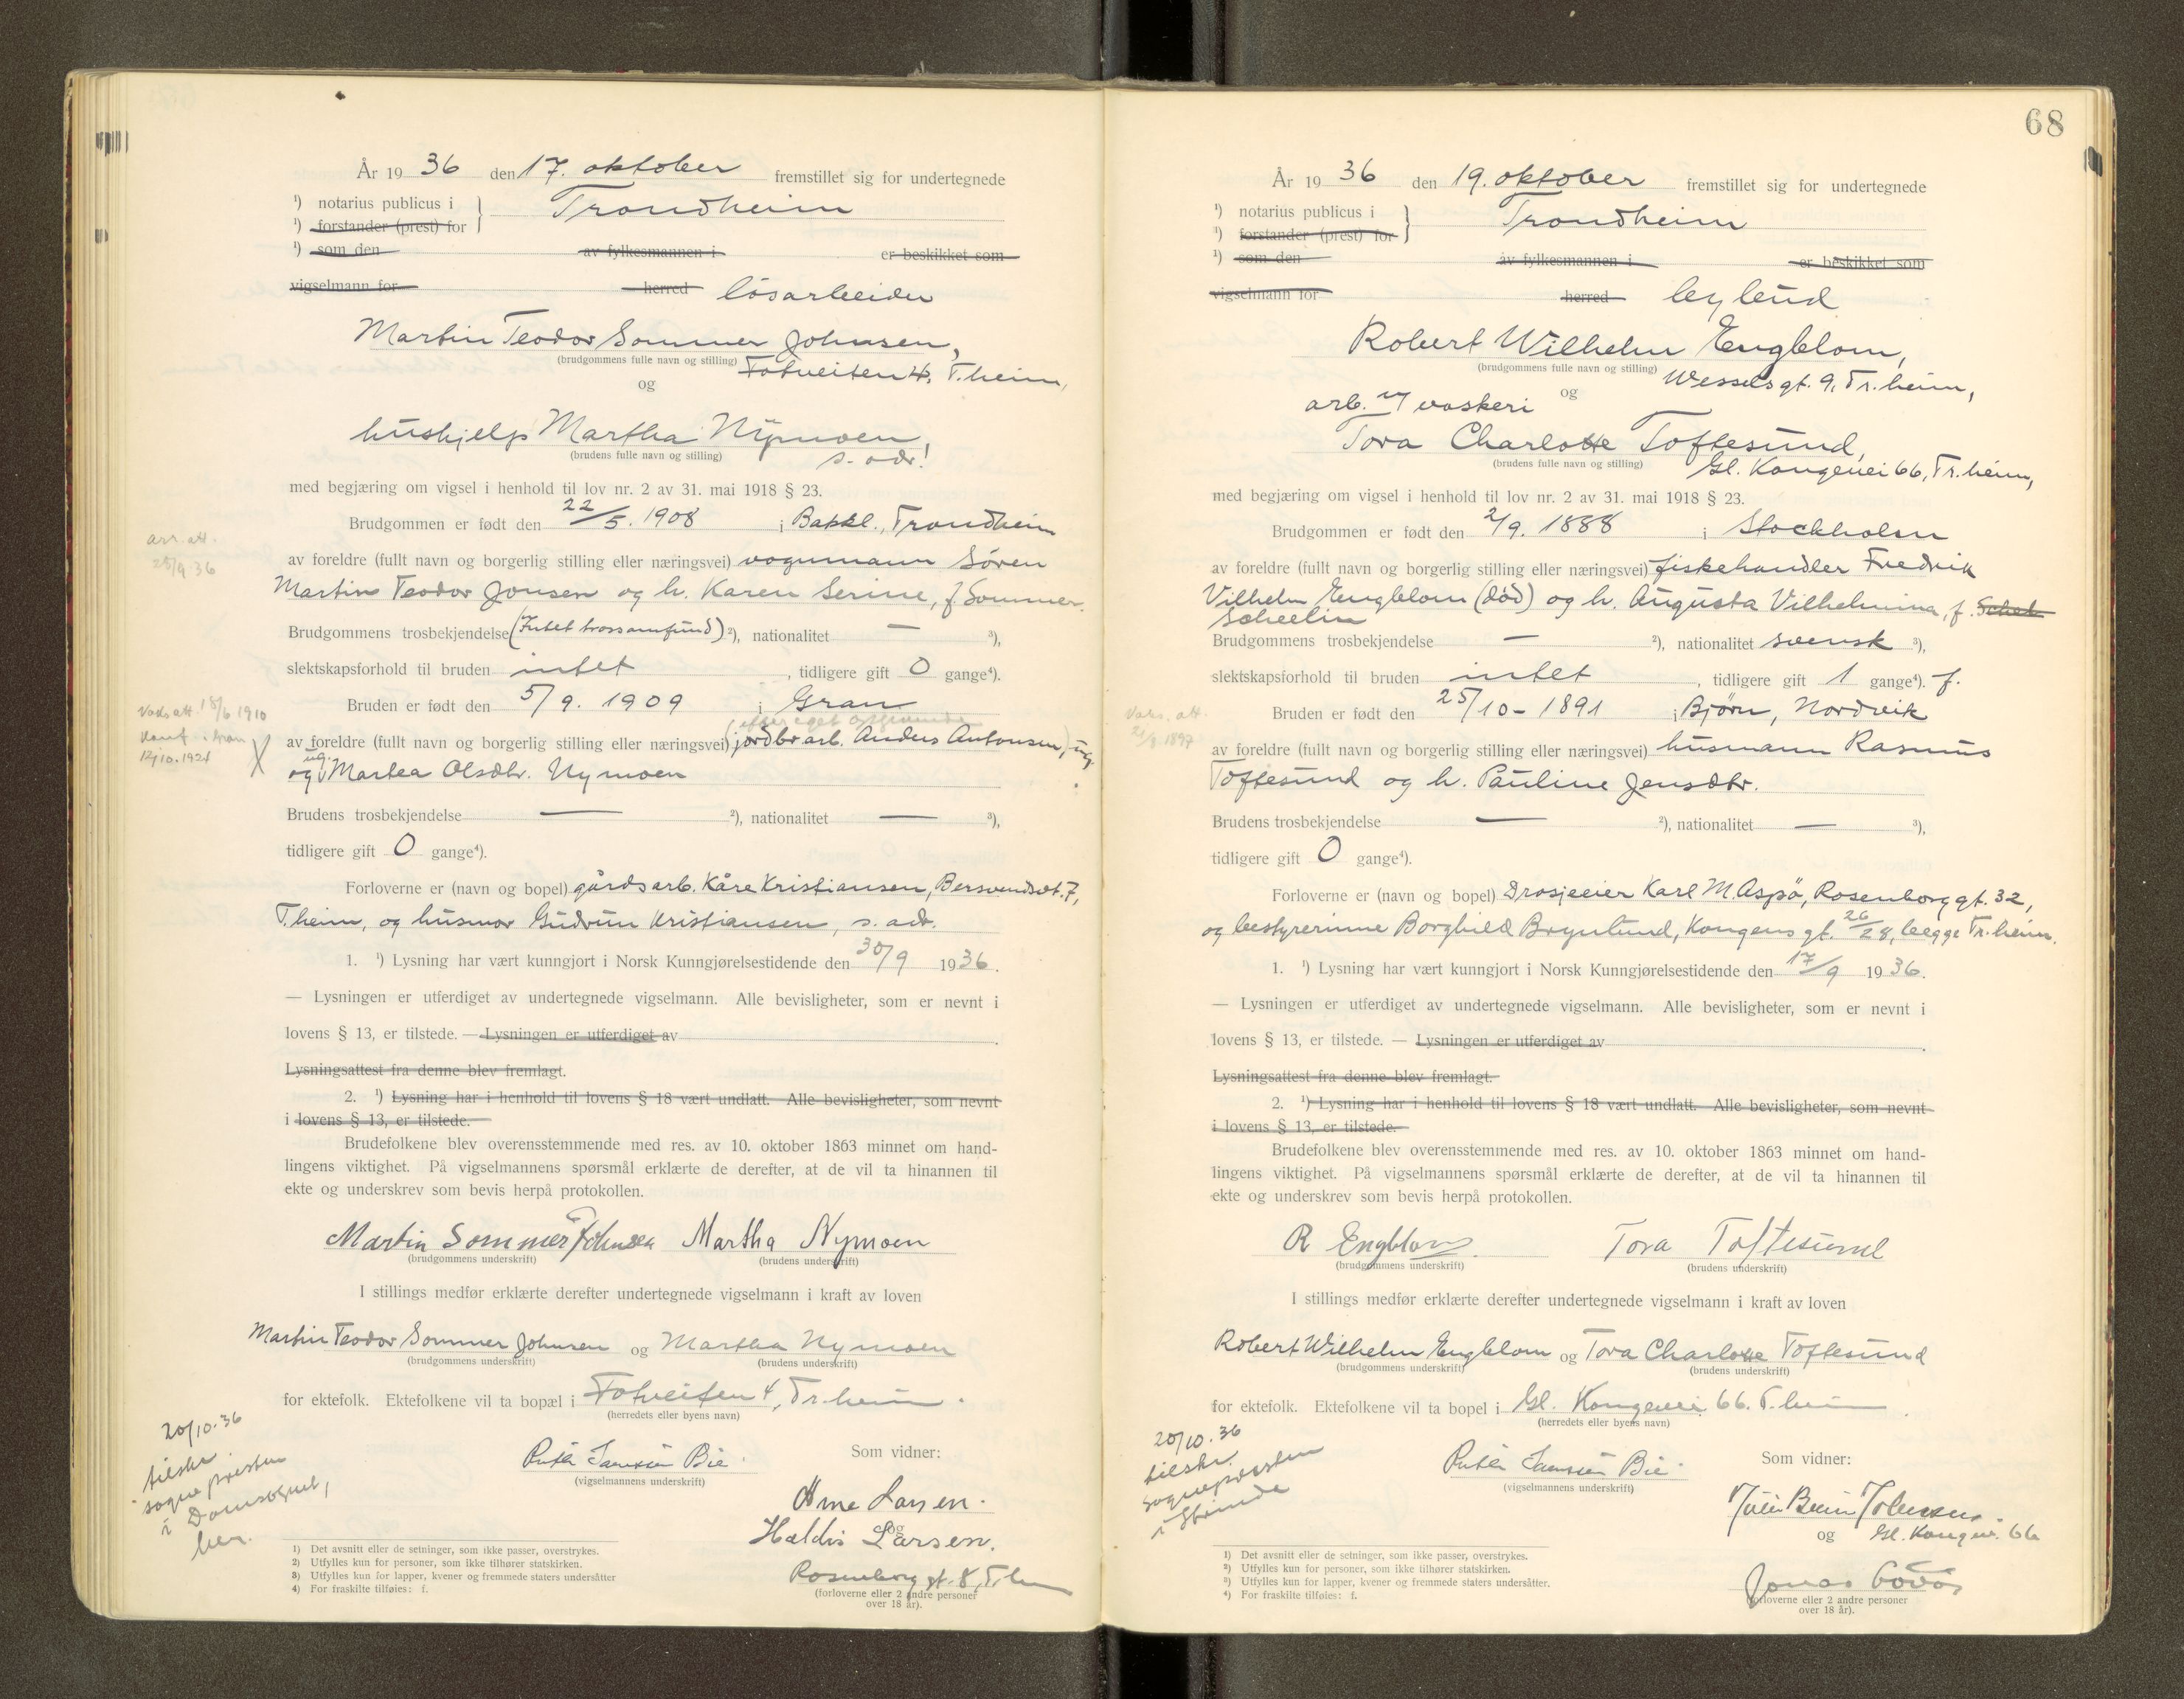 År 19 36 den 17. oktober fremstillet sig for undertegnede
¹) notarius publicus i
Trondheim
¹) forstander (prest) for
¹) som den av fylkesmannen i er beskikket som
vigselmann for herred løsarbeider
Martin Teodor Sommer Johnsen,
(brudgommens fulle navn og stilling) Fotveiten 4, T.heim,
og
hushjelp Martha Nymoen,
(brudens fulle navn og stilling) s. adr!
med begjæring om vigsel i henhold til lov nr. 2 av 31. mai 1918 § 23.
Brudgommen er født den 22/5. 1908 i Bakkl., Trondheim
arr. att.
25/9 36
av foreldre (fullt navn og borgerlig stilling eller næringsvei) vognmann Sören
Martin Teodor Jonsen og h. Karen Serine, f. Sommer.
Brudgommens trosbekjendelse (Intet trossamfund) ²), nationalitet — ³),
slektskapsforhold til bruden intet , tidligere gift 0 gange⁴).
Bruden er født den 5/9. 1909 i Gran
Vaks. att. 18/6 1910
(efter eget opgivende
av foreldre (fullt navn og borgerlig stilling eller næringsvei) jordbr. arb. Anders Antonsen) ug.
ug.
og Martea Olsdtr. Nymoen
Brudens trosbekjendelse — ²), nationalitet — ³),
tidligere gift 0 gange⁴).
Forloverne er (navn og bopel) gårdsarb. Kåre Kristiansen, Bersvendsvt. 7,
T.heim, og husmor Gudrun Kristiansen, s. adr.
1. ¹) Lysning har vært kunngjort i Norsk Kunngjørelsestidende den 30/9 1936.
— Lysningen er utferdiget av undertegnede vigselmann. Alle bevisligheter, som er nevnt i
lovens § 13, er tilstede. — Lysningen er utferdiget av .
Lysningsattest fra denne blev fremlagt.
2. ¹) Lysning har i henhold til lovens § 18 vært undlatt. Alle bevisligheter, som nevnt
i lovens § 13, er tilstede.
Brudefolkene blev overensstemmende med res. av 10. oktober 1863 minnet om hand-
lingens viktighet. På vigselmannens spørsmål erklærte de derefter, at de vil ta hinannen til
ekte og underskrev som bevis herpå protokollen.
Martin Sommer Johnsen Martha Nymoen
(brudgommens underskrift) (brudens underskrift)
I stillings medfør erklærte derefter undertegnede vigselmann i kraft av loven
Martin Teodor Sommer Johnsen og Martha Nymoen
(brudgommens underskrift) (brudens underskrift)
for ektefolk. Ektefolkene vil ta bopæl i Fotveiten 4, Tr.heim.
(herredets eller byens navn)
20/10. 36
tilskr.
sogneprésten
i Domsognet,
her.
Som vidner:
(vigselmannens underskrift)
Arne Larsen.
og
Haldis Larsen.
Rosenborg gt. 8, T.hm
(forloverne eller 2 andre personer
over 18 år).
1) Det avsnitt eller de setninger, som ikke passer, overstrykes.
2) Utfylles kun for personer, som ikke tilhører statskirken.
3) Utfylles kun for lapper, kvener og fremmede staters undersåtter
4) For fraskilte tilføies: f.
68
År 19 36 den 19. oktober fremstillet sig for undertegnede
¹) notarius publicus i
Trondheim
¹) forstander (prest) for
¹) som den av fylkesmannen i er beskikket som
vigselmann for herred
Robert Wilhelm Engblom,
(brudgommens fulle navn og stilling) Wessels gt. 9, Tr.heim,
og
arb. v/ vaskeri
Tora Charlotte Toftesund,
(brudens fulle navn og stilling) Gl. Kongevei 66, Tr.heim,
med begjæring om vigsel i henhold til lov nr. 2 av 31. mai 1918 § 23.
Brudgommen er født den 2/9. 1888 i Stockholm
av foreldre (fullt navn og borgerlig stilling eller næringsvei) fiskehandler Fredrik
Vilhelm Engblom (död) og h. Augusta Vilhelmina, f. Scheh
Scheelin
Brudgommens trosbekjendelse — ²), nationalitet svensk ³),
slektskapsforhold til bruden intet , tidligere gift 1 gange⁴). f.
Bruden er født den 25/10 - 1891 i Bjørn, Nordvik
Vaks. att.
av foreldre (fullt navn og borgerlig stilling eller næringsvei) husmann Rasmus
Toftesund og h. Pauline Jensdtr.
Brudens trosbekjendelse — ²), nationalitet — ³),
tidligere gift 0 gange⁴).
Forloverne er (navn og bopel) Drosjeeier Karl M. Aspö, Rosenborg gt. 32,
og bestyrerinne Borghild Brynlund, Kongens gt. 26/28, begge Tr.heim.
1. ¹) Lysning har vært kunngjort i Norsk Kunngjørelsestidende den 17/9 1936.
— Lysningen er utferdiget av undertegnede vigselmann. Alle bevisligheter, som er nevnt i
lovens § 13, er tilstede. — Lysningen er utferdiget av .
Lysningsattest fra denne blev fremlagt.
2. ¹) Lysning har i henhold til lovens § 18 vært undlatt. Alle bevisligheter, som nevnt
i lovens § 13, er tilstede.
Brudefolkene blev overensstemmende med res. av 10. oktober 1863 minnet om hand-
lingens viktighet. På vigselmannens spørsmål erklærte de derefter, at de vil ta hinannen til
ekte og underskrev som bevis herpå protokollen.
R Engblom. Tora Toftesund
(brudgommens underskrift) (brudens underskrift)
I stillings medfør erklærte derefter undertegnede vigselmann i kraft av loven
Robert Wilhelm Engblom og Tora Charlotte Toftesund
(brudgommens underskrift) (brudens underskrift)
for ektefolk. Ektefolkene vil ta bopel i Gl. Kongevei 66. T.heim .
(herredets eller byens navn)
20/10. 36
tilskr.
sognepresten
i Strinda
Som vidner:
(vigselmannens underskrift)
Johnsen.
og Gl. Kongev. 66
Jonas
(forloverne eller 2 andre personer
over 18 år).
1) Det avsnitt eller de setninger, som ikke passer, overstrykes.
2) Utfylles kun for personer, som ikke tilhører statskirken.
3) Utfylles kun for lapper, kvener og fremmede staters undersåtter.
4) For fraskilte tilføies: f.